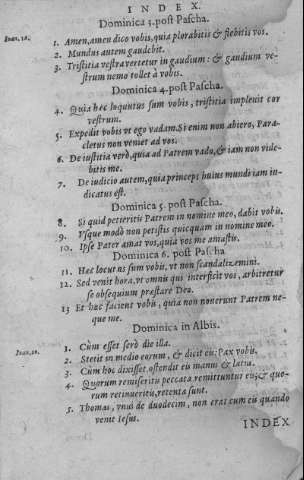 INDEX.
Dominica 3. post Pascha.
Ioan. 16. 1. Amen, amen dico vobis, quia plorabitis & flebitis vos.
2. Mundus autem gaudebit.
3. Tristitia vestra vertetur in gaudium: & gaudium ve-
strum nemo tollet à vobis.
Dominica 4. post Pascha.
4. Quia hec loquutus sum vobis, tristitia implevit cor
vestrum.
5. Expedit vobis vt ego vadam. Si enim non abiero, Para-
cletus non veniet ad vos.
6. De iustitia verò, quia ad Patrem vado, & iam non vide-
bitis me.
7. De iudicio autem, quia princeps huius mundi iam in-
dicatus est.
Dominica 5. post Pascha.
8. Si quid petieritis Patrem in nomine meo, dabit vobis.
9. Vsque modò non petistis quicquam in nomine meo.
10. Ipse Pater amat vos, quia vos me amastis.
Dominica 6. post Pascha
11. Hec locutus sum vobis, vt non scandalizemini.
12. Sed venit hora, vt omnis qui interficit vos, arbitretur
se obsequium præstare Deo.
13 Et hec facient vobis, quia non noverunt Patrem ne-
que me.
Dominica in Albis.
Ioan. 20. 1. Cùm esset serò die illa.
2. Stetit in medio eorum, & dicit eis: Pax vobis.
3. Cùm hoc dixisset, ostendit eis manus & latus.
4. Quorum remiseritis peccata remittuntur eis: & quo-
rum retinueritis, retenta sunt.
5. Thomas, vnus de duodecim, non erat cum eis quando
venit Iesus.
INDEX